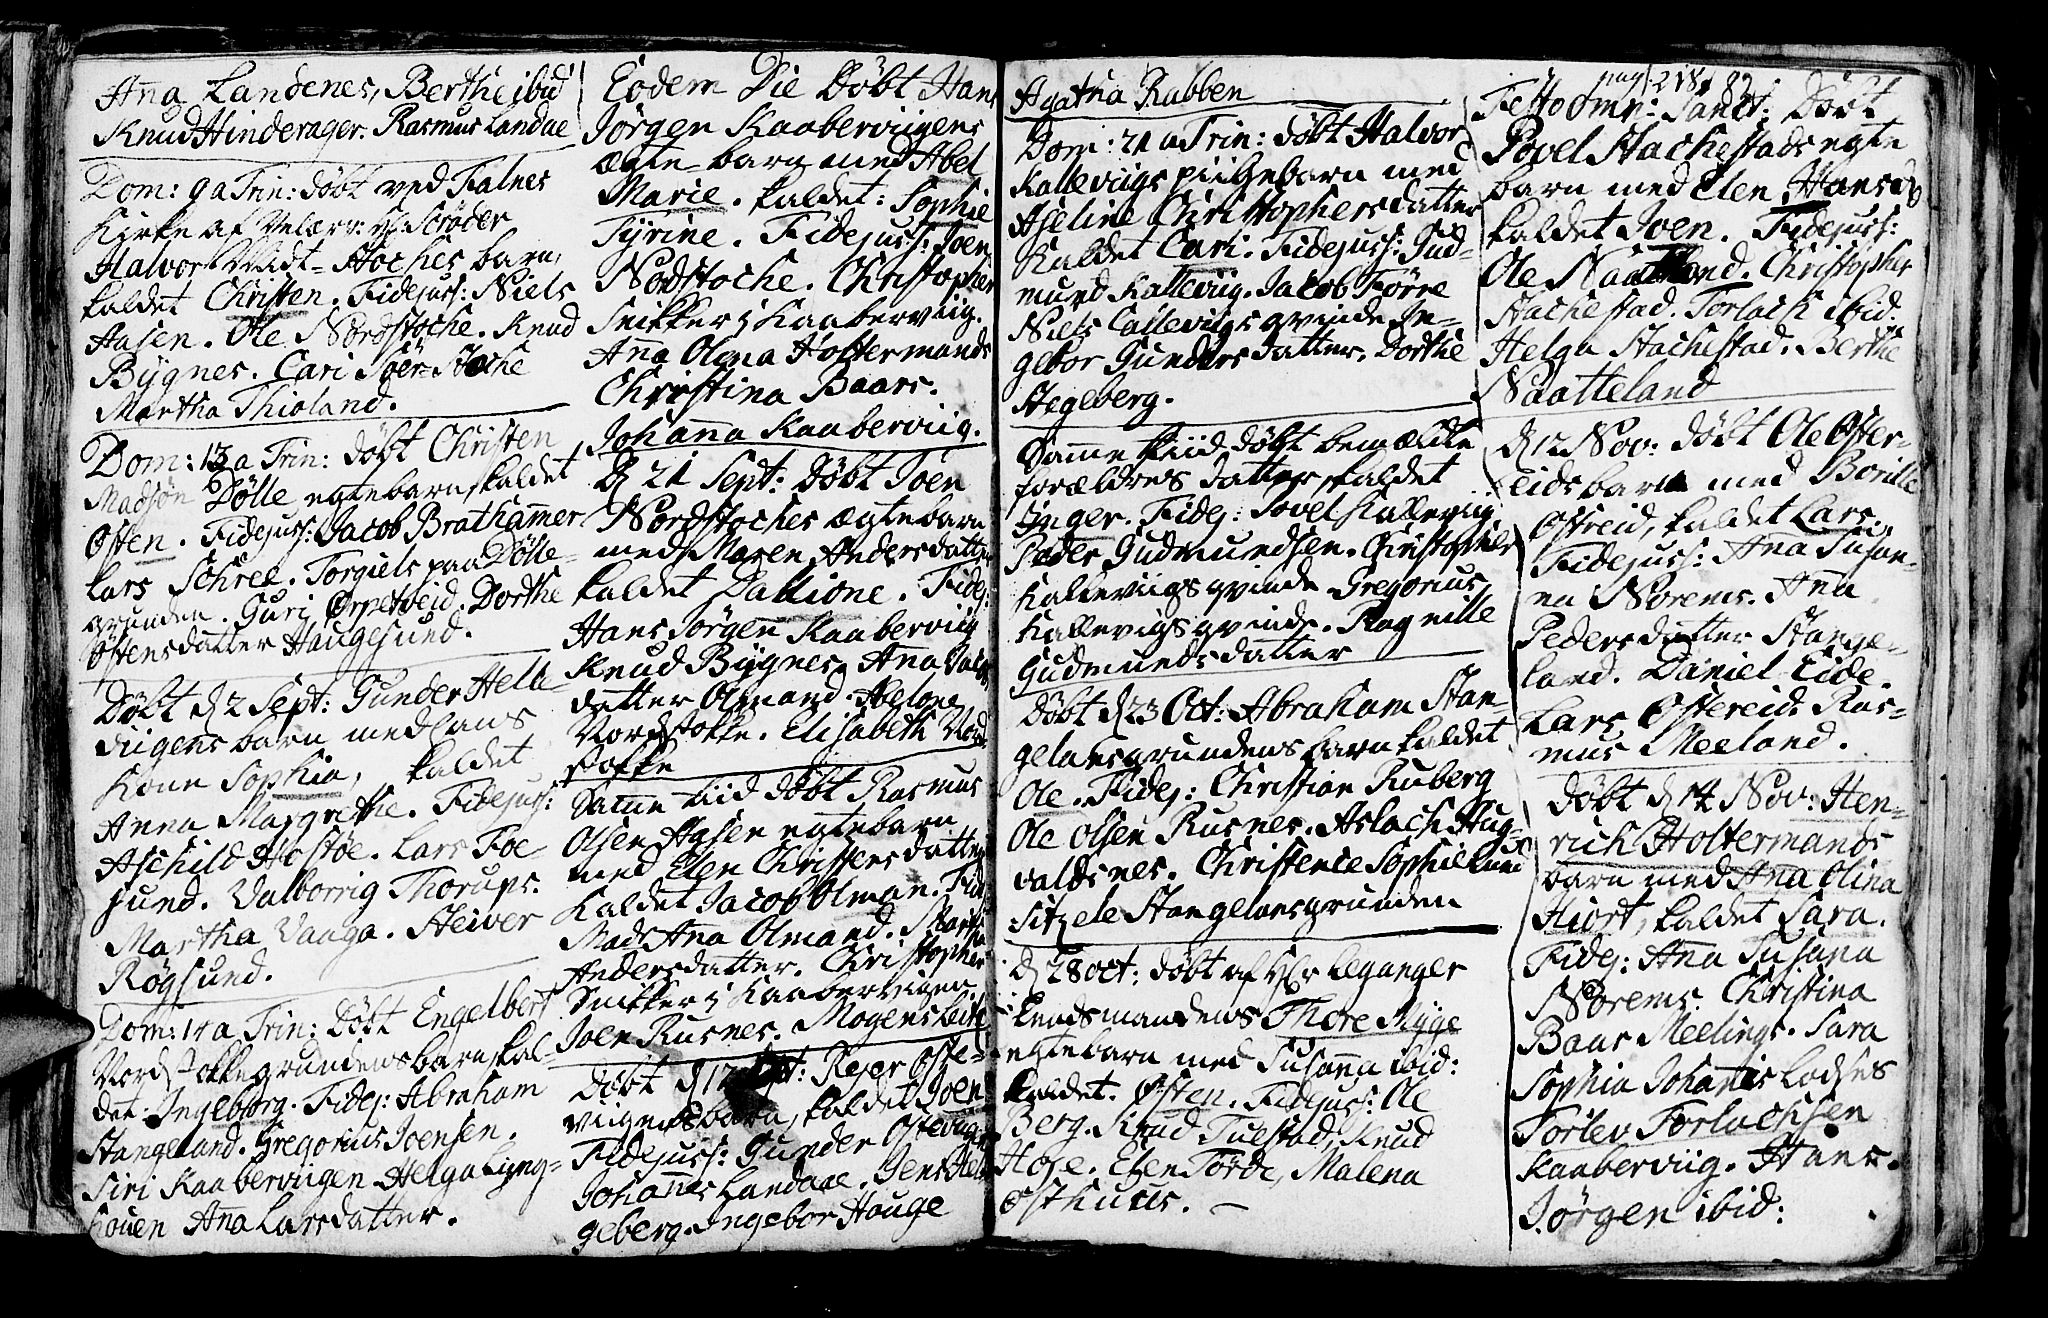 Anna Landenes, Berthe ibid
Knud Hinderager. Rasmus Landaae
Dom: 9 a Trin: døbt ved Falnes
Kirke af Velærv: Hr: Scrøder
Halvor Midt-Stoches barn,
kaldet Christen. Fidejuss: Niels
Aasen. Ole Nordstoche. Knud
Bygnes. Cari Søer-Stoche
Martha Thioland.
Dom: 13 a Trin: døbt Christen
Madsøn Dölle egte barn, kaldet
Østen. Fidejuss: Jacob Brathammer
Lars Schree. Torgiels paa Dölle-
grunden. Guri Ørpetveid. Dorthe
Østensdatter Haugesund.
Døbt d 2 Sept: Gunder Helle-
viigens barn med hans
Kone Sophia, kaldet
Anna Margrethe. Fidejuss:
Aschild Høstøe. Lars Foe-
sund. Valborrig Thorups.
Martha Vaaga. Steiver
Røgsund.
Dom: 14 a Trin: Døbt Engelbert
Nordstokkegrundens barn, kal-
det Ingeborg. Fidej: Abraham
Stangeland. Gregorius Joensen.
Siri Kaaberviigen Helga Lyng-
houen Ana Larsdatter.
Eodem Die Døbt Hans
Jørgen Kaaberviigens
ægte-barn med Abel
Marie. kaldet: Sophie
Tyrine. Fidejuss: Joen
Nordstoche. Christopher
Snikker i Kaaberviig.
Anna Olina Holtermands
Christina Baars.
Johanna Kaaberviig.
D 21 Sept: Døbt Joen
Nordstoches ægte barn
med Maren Andersdatter
kaldet Dallione. Fidej:
Hans Jørgen Kaaberviig
Knud Bygnes. Anna
datter Olmand. Abelone
Nordstokke. Elisabeth Nord
stokke
Samme tiid døbt Rasmus
Olsen Aasen egte barn
med Elen Christensdatter
Kaldet Jacob Olman. Fid
Mads Ana Olmand. Martha
Andersdatter. Christopher
Snikker i Kaaberviigen
Joen Rusnes. Mogens
Døbt d 12 Rejer Øste-
viigens barn, kaldet Joen
Fidejuss: Gunder Østeviig
Johannes Landaae. Jens Ste
geberg. Ingebor Hauge
Agatha Rabben
Dom: 21 a Trin: døbt Halvor
Kalleviigs piigebarn med
Aseline Christophersdatter
Kaldet Cari. Fidejuss: Gud-
mund Kalleviig. Jacob Førre
Niels Calleviigs qvinde In-
gebor Gundersdatter, Dorthe
Stegeberg.
Samme tiid døbt bemældte
forældres datter, kaldet
Inger. Fidej: Povel Kalleviig
Peder Gudmundsen. Christopher
Kalleviigs qvinde Gregorius
Kallevigs qvinde. Ragnille
Gudmundsdatter
Døbt d 23 Oct: Abraham Stan-
gelandsgrundens barn kaldet
Ole. Fidej: Christian Ruberg
Ole Olsen Rusnes. Aslach Aug-
valdsnes. Christence Sophie Lund
Sitzele Stangelansgrunden
D 28 Oct: døbt af Hr Leganger
Lendsmandens Thore Myge
egte barn med Susanna ibid:
kaldet. Østen. Fidejuss: Ole
Berg. Knud Tuestad, Knud
Hose. Elen Førde, Malena
Østhuus.
pag: 218
Festo Omn: Sanct: Døbt
Povel Stachestads egte
barn med Elen Hansd
kaldet Joen. Fidejuss:
Ole Naatland. Christopher
Stachestad. Torlach ibid.
Helga Stachestad. Berthe
Naatteland
d 12 Nov: døbt Ole Øster-
eids barn med Borille
Østreid, kaldet Lars.
Fidejuss: Anna Susan-
na Norems. Anna
Pedersdatter Stange-
land. Daniel Eide.
Lars Østereid. Ras-
mus Meeland.
Døbt d 14 Nov: Hen-
rich Holtermands
barn med Ana Olina
Hiort, kaldet Sara.
Fidej: Ana Susana
Norems. Christina
Baas Meelings. Sara
Sophia Johannis Lodses
Torlev Torlachsen
Kaaberviig. Hans.
Jørgen ibid: